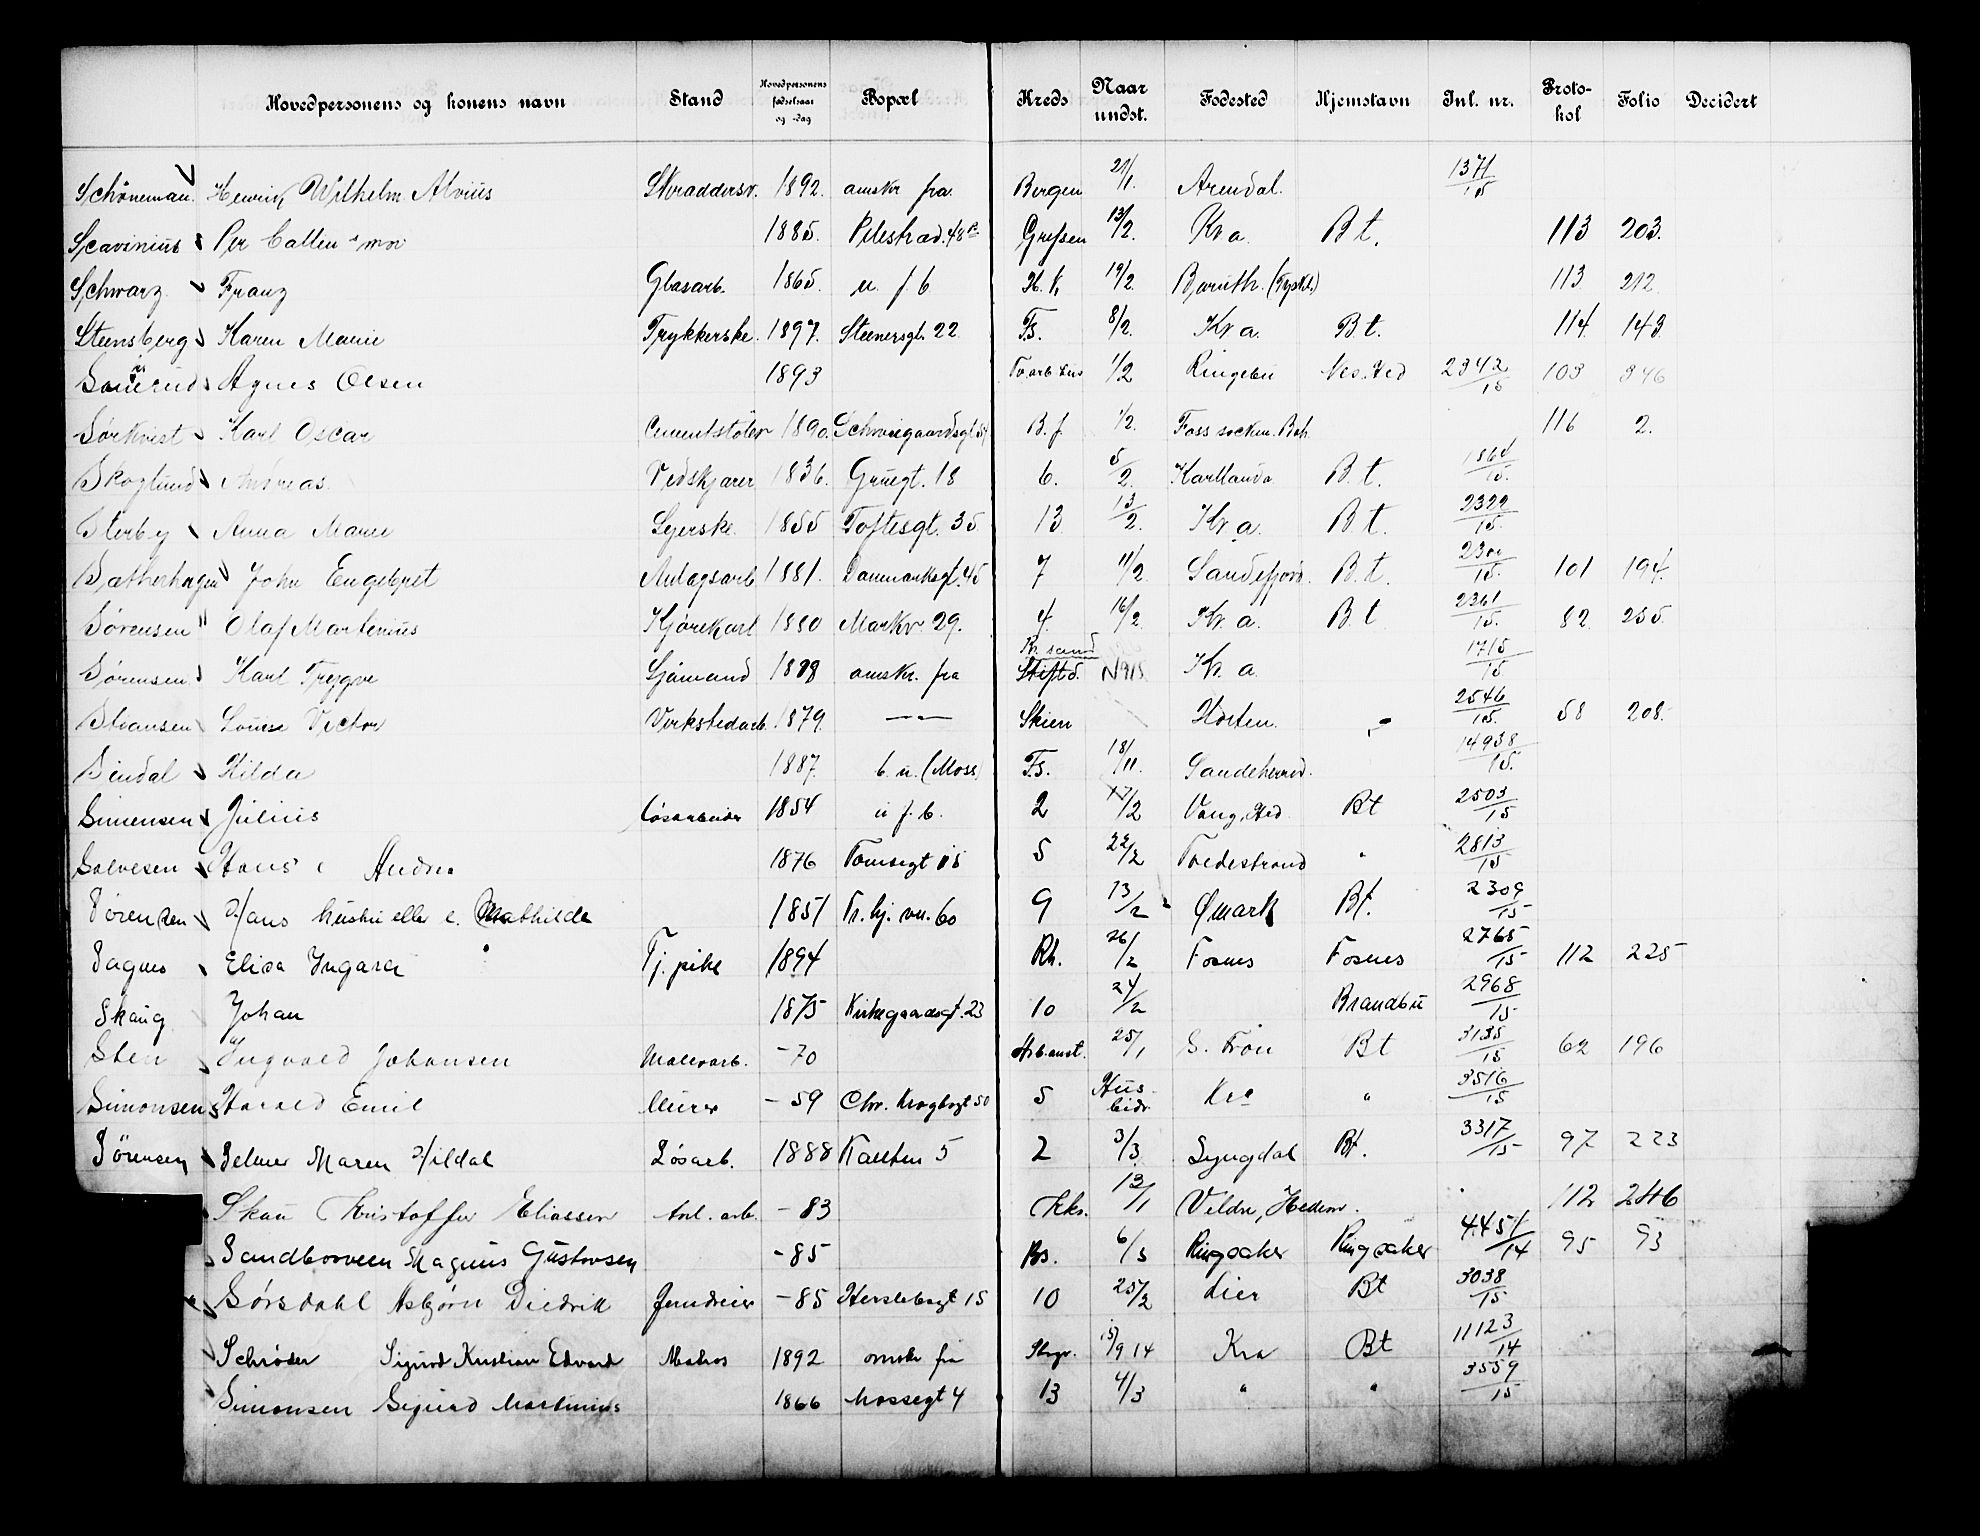 Hovedpersonens og konens navn Stand Hovedpersonens fødselsaar og -dag Bopæl Kreds Naar undst. Fødested Hjemstavn Jnl. nr. Protokol Folio Decidert
Schöneman. Henrik Wilhelm Alvius Skraddersv. 1892. amskr fra Bergen 21/1. Arendal. 1371/15
Scavinius Per Callin 1885. Pilestræd. 48 Grefsen 13/2. Kr a. B t. 113 203.
Schwarz Franz Glasarb. 1865. u. f. b 19/2. (Tyskl.) 113 212
Steensberg Karen Marie Trykkerske. 1897. Steenersgt. 22 Fs. 8/2. Kr a. B t. 114. 143
Agnes Olsen 1893 1/2 Ringebu Nes. Hed 2342/15 103 346
Sørkvist Karl Oscar Cementstøber 1890. Schweigaardsgt B. f. 1/2. Foss socken. Boh. 116 2.
Skoglund Andreas. Vedskjærer 1836. Grüegt. 18 6. 5/2. Karllanda B. t. 1864/15.
Sterby Anna Marie Syerske. 1855 Toftesgt. 35 13 13/2. Kr. a. B t. 2322/15.
Sætherhagen John Engebret Anlagsarb 1881. Danmarksgt. 45 7 11/2. Sandefjord. B. t. 2300/15. 101 194.
Sørensen Olaf Martinius Kjørekarl 1880 Markv. 29. 4. 16/2. Kr. a. B. t 2361/15. 82 255.
Sørensen Karl Trygve Sjømand 1888 amskr. fra Kr. sand Stiftd. N915 Kr. a 1715/15
Louis Victor Verkstedarb. 1879. —〃— Skien Horten. 〃 2546/15. 58 208.
Sindal Hilda 1887. b. u. (Moss) Fs. 18/11. Sandeherred. 14938/15.
Simensen Julius Løsarbeider 1854 u f. b. 2 17/2 Vang, Hed. Bt 2503/15
Salvesen Hans 1876 Tomsegt 15 5 22/2 Tvedestrand 〃 2813/15
Sørensen Hans hustru eller e. Mathilde 1851 Tr. hj. vn. 60 9 13/2 Ømark Bt. 2309/15
Sagnes Elisa Ingara Tj. pike 1894 Rh. 26/2 Fosnes Fosnes 2765/15 112 225
Skaug Johan 1875 Kirkegaardsgt. 23 10 24/2 Brandbu 2968/15
Sten Ingvald Johansen Malerarb. -70 Arb.anst. 25/1 S. Fron Bt 3135/15 62 196
Simonsen Harald Emil Murer -59 Chr. Kroghsgt 50 5 Hus-beidr Kra 〃 3516/15
Sørensen Selmer Maren Hildal Løsarb. 1888 Kalten 5 2 3/3. Lyngdal Bt. 3317/15 97 223
Skau Kristoffer Eliassen Anl. arb. -83 Kks. 13/1 Veldre, Hedem. 112 246
Sandborveen Magnus Gustovsen -85 Bs. 6/3 Ringsaker Ringsaker 4451/14 95 93
Sørsdahl Asbjørn Diedrik Jerndreier -85 Herslebsgt 15 10 25/2 Lier Bt 3038/15
Schrøder Sigurd Kristian Edvard Matros 1892 omskr fra 15/9 14 Kra Bt 11123/14
Simonsen Sigurd Martinius 1866 Mossegt 4 13 4/3 〃 〃 3559/15